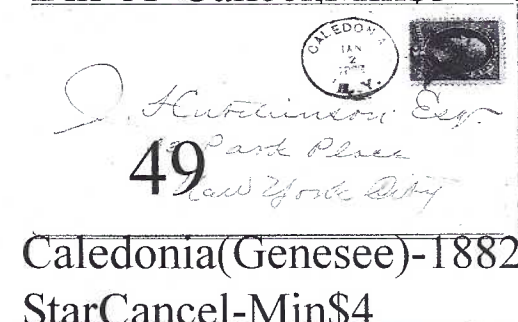 CALEDONIA
JAN
2
N.Y.
J. Hutchinson Esq.
Park Place
49
New York City
Caledonia(Genesee)-1882
StarCancel-Min$4